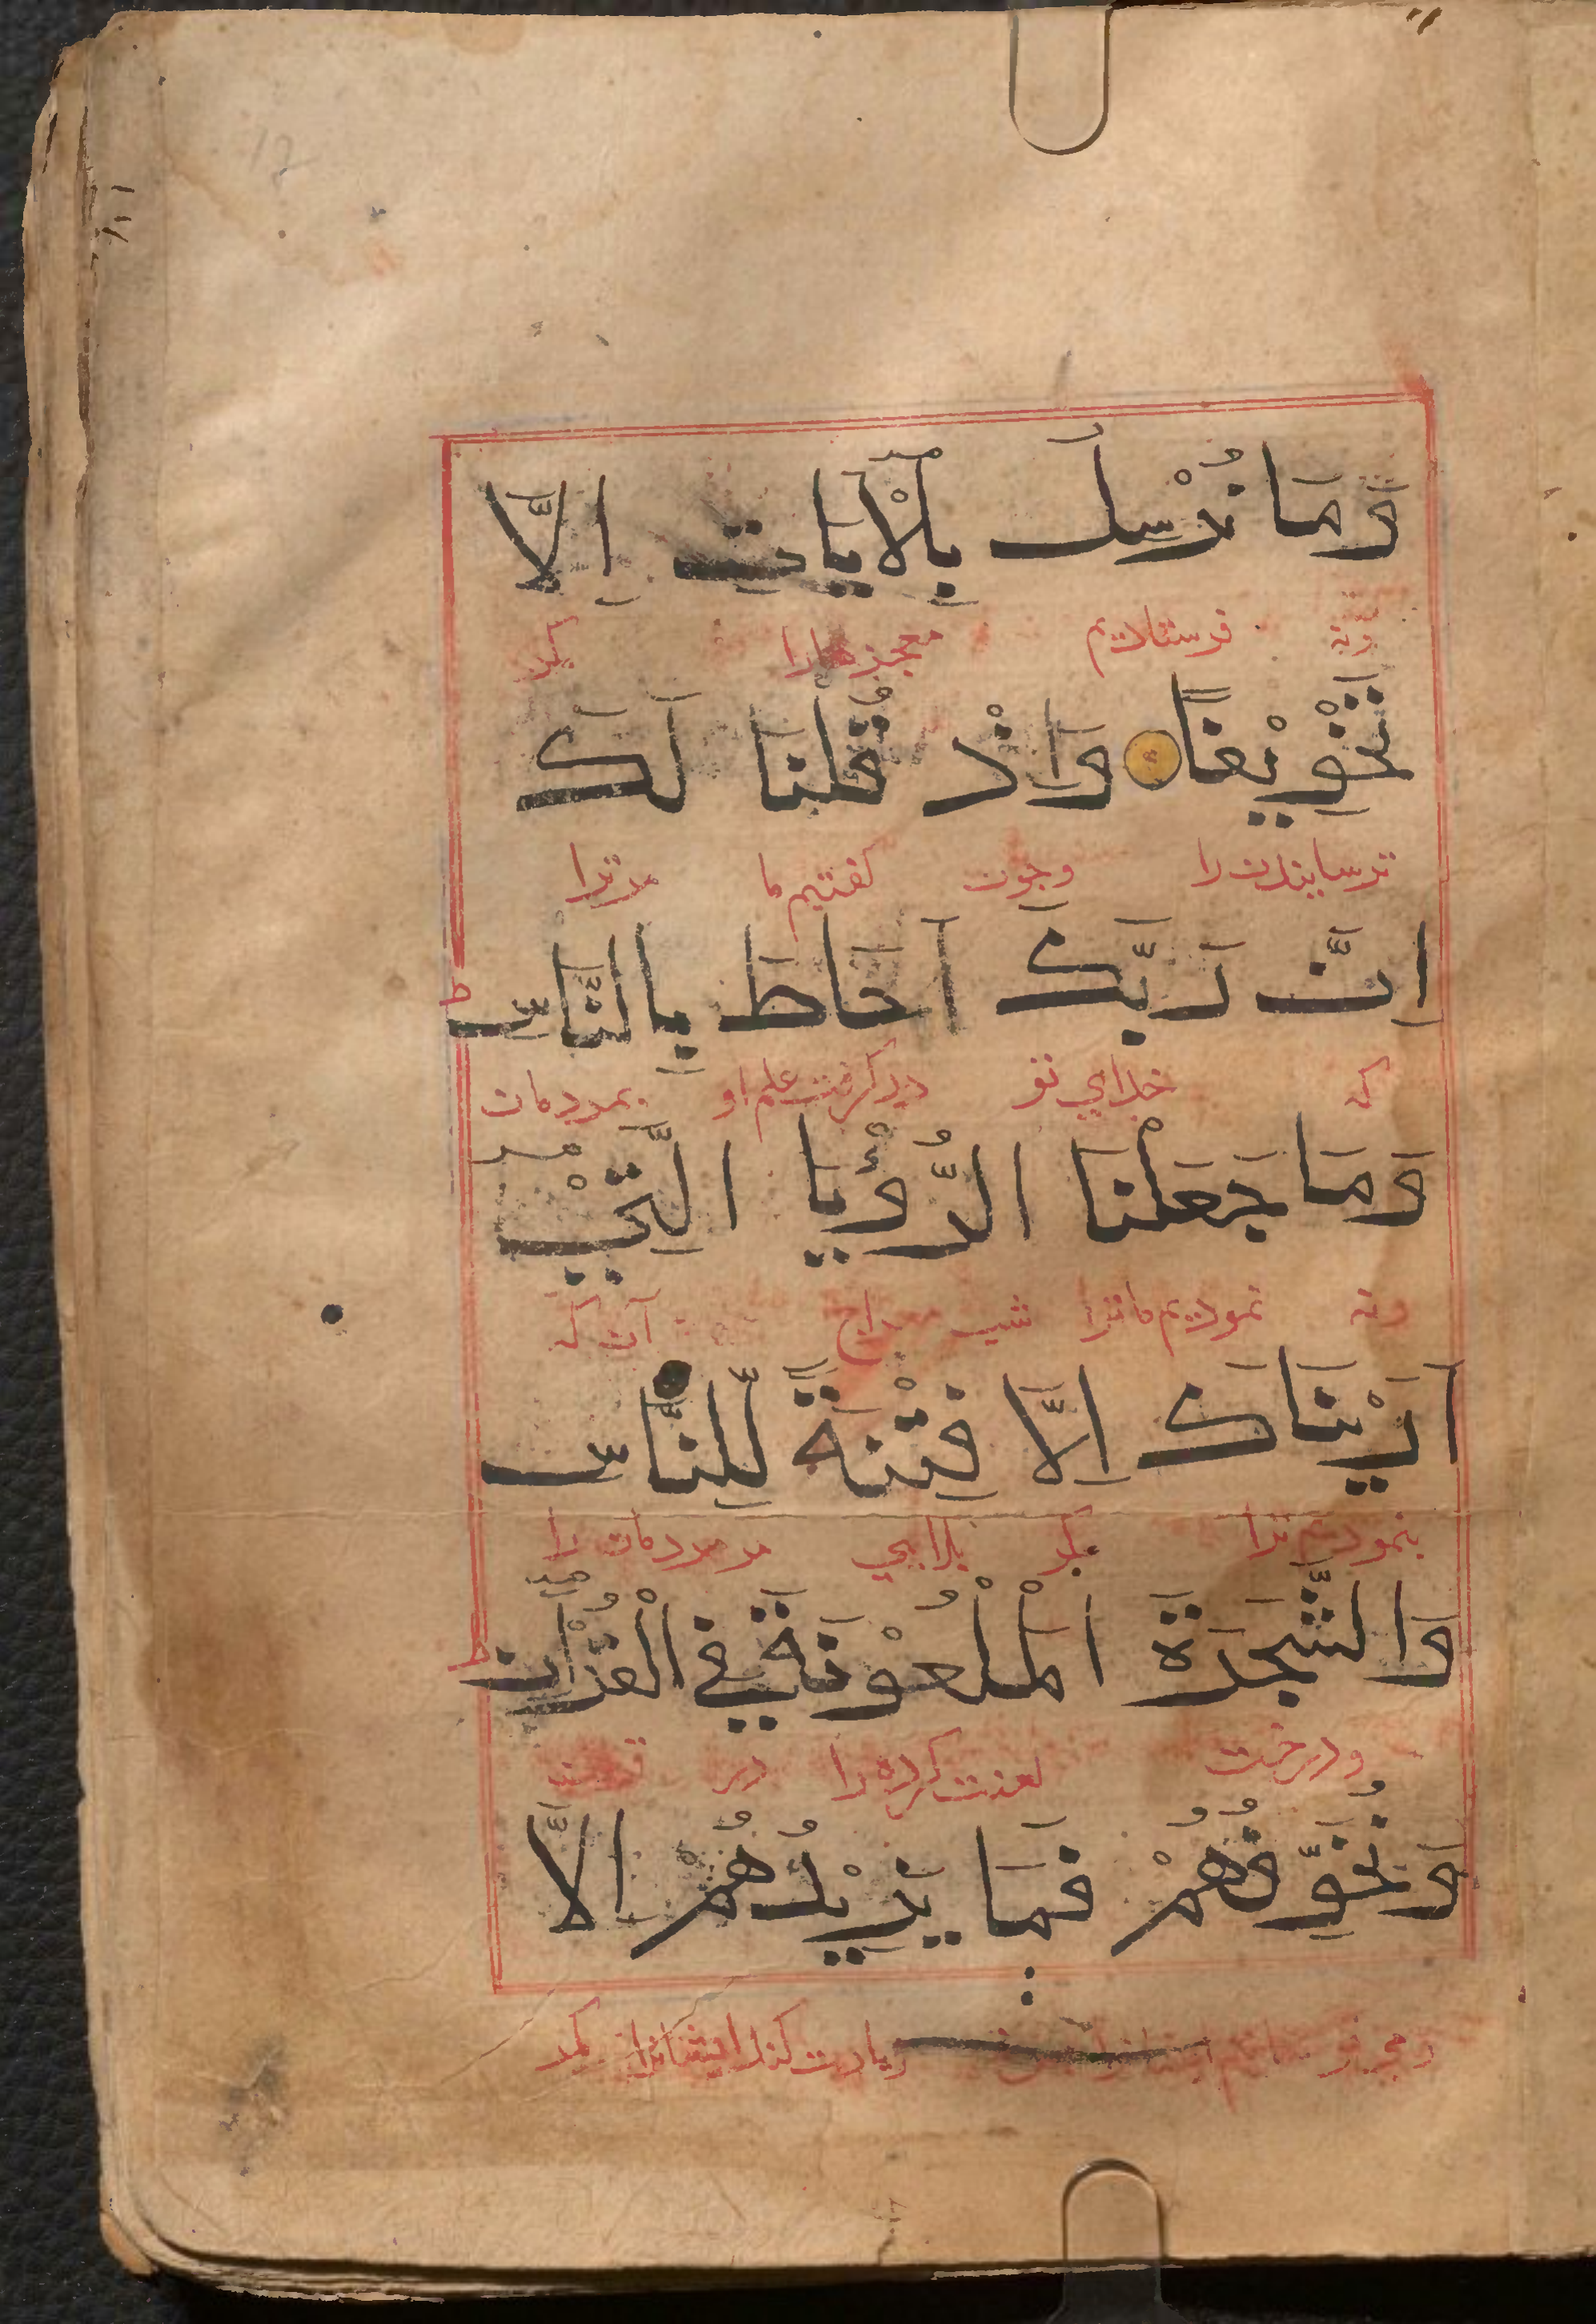 وَمَا نُرْسِلُ بِالْآيَاتِ اِلَّا
ونه فرستادیم معجزهارا مکر
تَخْوِيْفًا وَاِذْ قُلْنَا لَكَ
ترسانیدن را وچون کفتیم ما مر ترا
اِنَّ رَبَّكَ اَحَاطَ بِالنَّاسِ ط
که خدای تو در کرفت علم او بمردمان
وَمَا جَعَلْنَا الرُّؤْيَا الَّتِيْ
ونه نمودیم ما ترا شب آن که
اَرَيْنَاكَ اِلَّا فِتْنَةً لِّلنَّاسِ
بنمودیم ترا مکر بلایی مر مردمان را
وَالشَّجَرَةَ الْمَلْعُوْنَةَ فِي الْقُرْآنِ ط
ودرخت لعنت کرده را در
وَنُخَوِّفُهُمْ فَمَا يَزِيْدُهُمْ اِلَّا
زیادت کند ایشانرا مکر